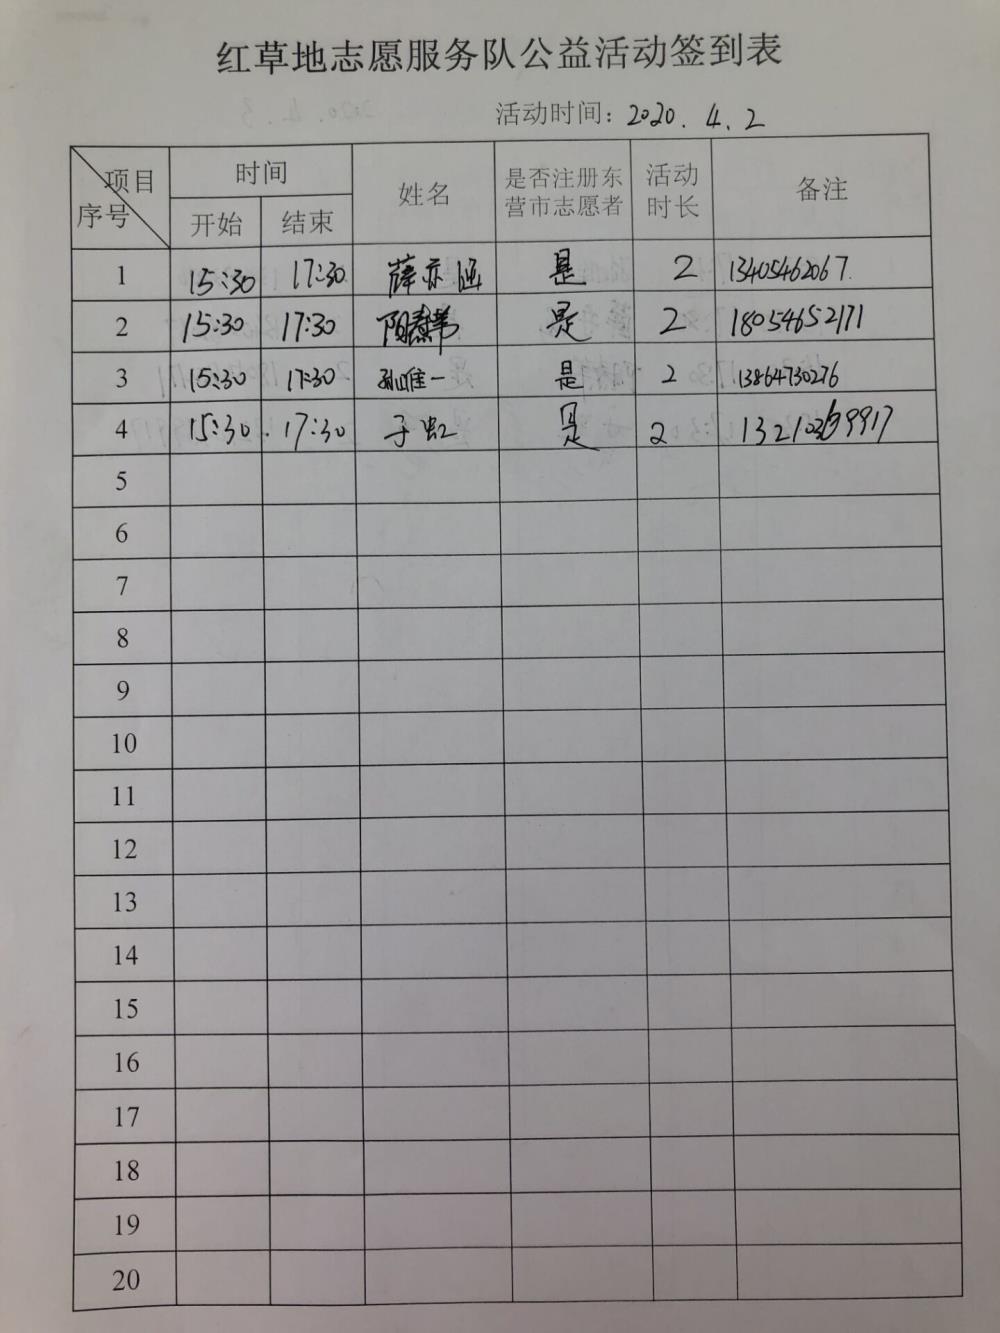 红草地志愿服务队公益活动签到表
活动时间：2020.4.2
项目 时间 姓名 是否注册东营市志愿者 活动时长 备注
序号 开始 结束
1 15:30 17:30 薛亦涵 是 2 13405462067.
2 15:30 17:30 是 2 18054652171
3 15:30 17:30 孙唯一 是 2 13864730276
4 15:30. 17:30 于虹 是 2
5
6
7
8
9
10
11
12
13
14
15
16
17
18
19
20